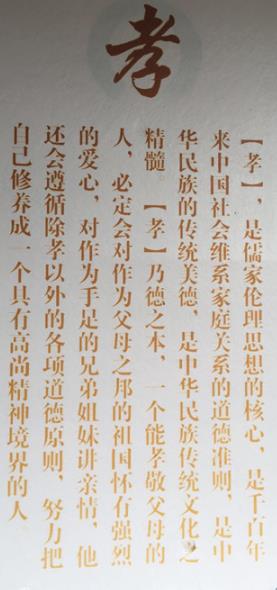 孝
【孝】，是儒家伦理思想的核心，是千百年
来中国社会维系家庭关系的道德准则，是中
华民族的传统美德，是中华民族传统文化之
精髓。【孝】乃德之本，一个能孝敬父母的
人，必定会对作为父母之邦的祖国怀有强烈
的爱心，对作为手足的兄弟姐妹讲亲情，他
还会遵循除孝以外的各项道德原则，努力把
自己修养成一个具有高尚精神境界的人